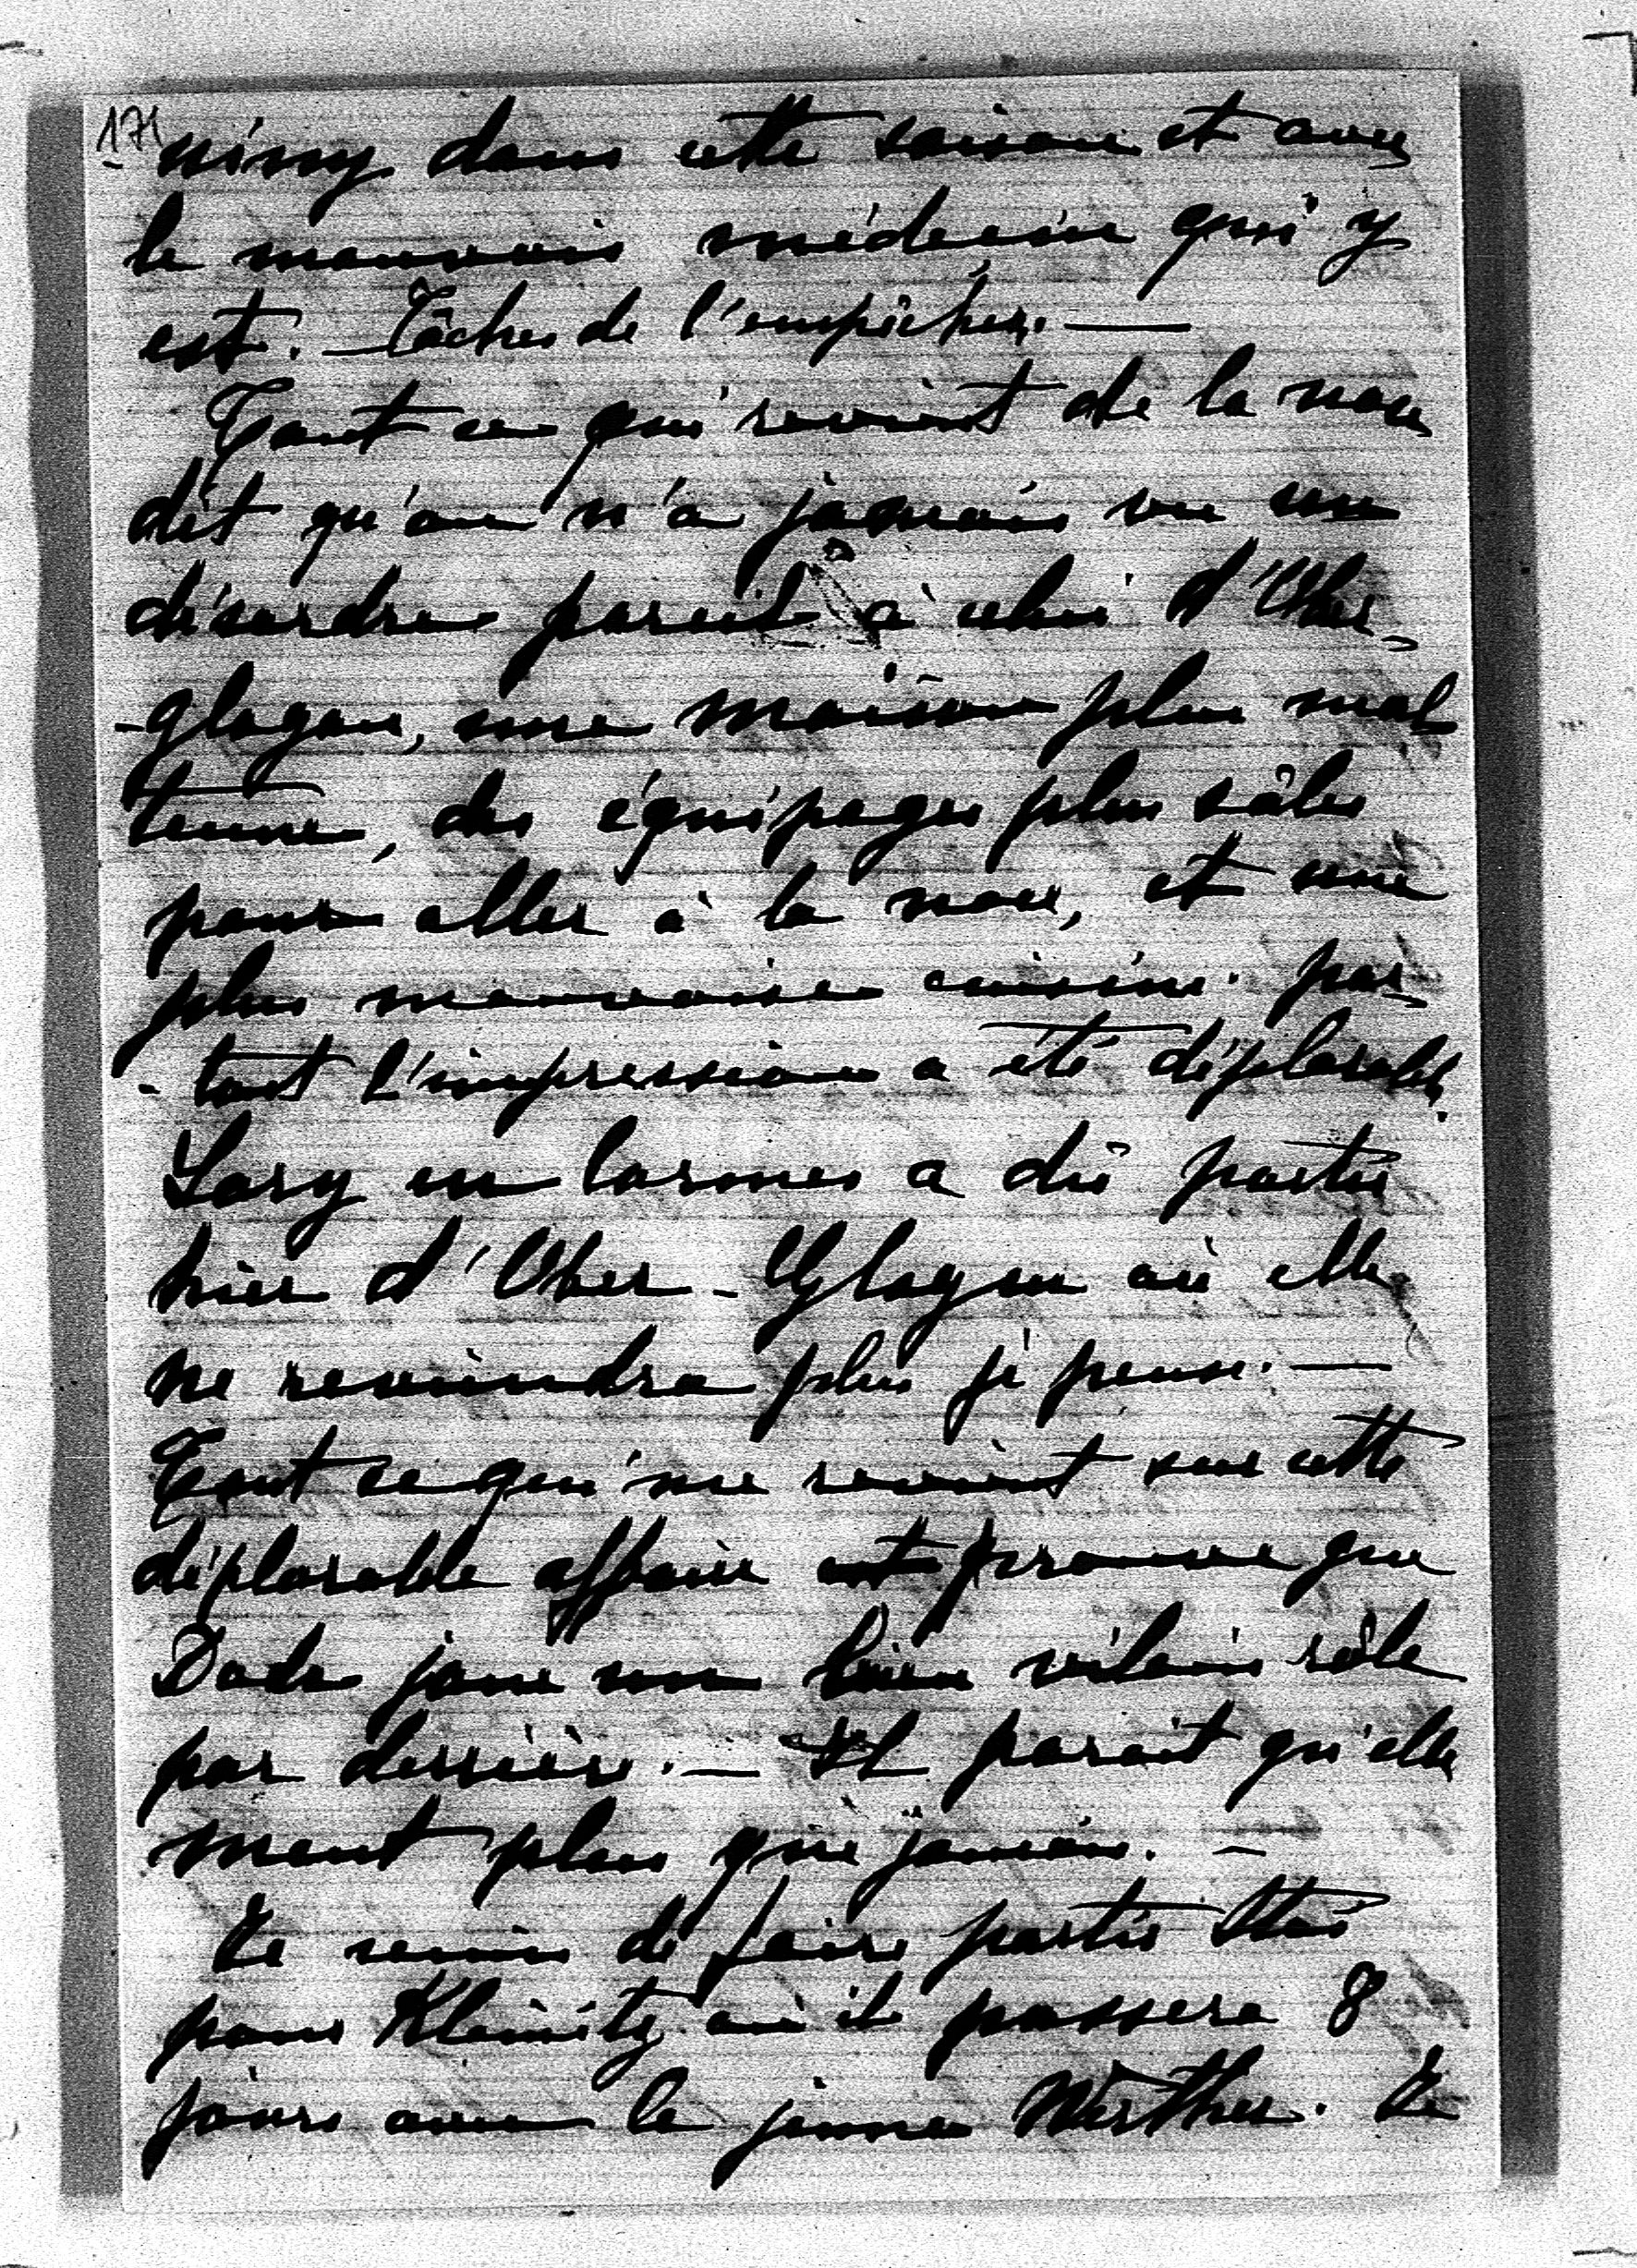 171
nimy dans cette saison et avec
le mauvais médecin qui y
est. — Tâchez de l'empêcher. —
Tout ce qui revient de la noce
dit qu'on n'a jamais vu un
désordre pareil à celui d'Ober-
-glogau, une maison plus mal
tenue, des équipages plus sâles
pour aller à la noce, et une
plus mauvaise cuisine. par-
-tout l'impression a été déplorable.
en larmes a dû partir
hier d'Ober-Glogau où elle
ne reviendra plus je pense. —
Tout ce qui me revient sur cette
déplorable affaire prouve que
joue un bien vilain rôle
par derrière. — Il parait qu'elle
ment plus que jamais. —
Je viens de faire partir
pour Klenitz où il passera 8
jours avec le jeune Werther. Je